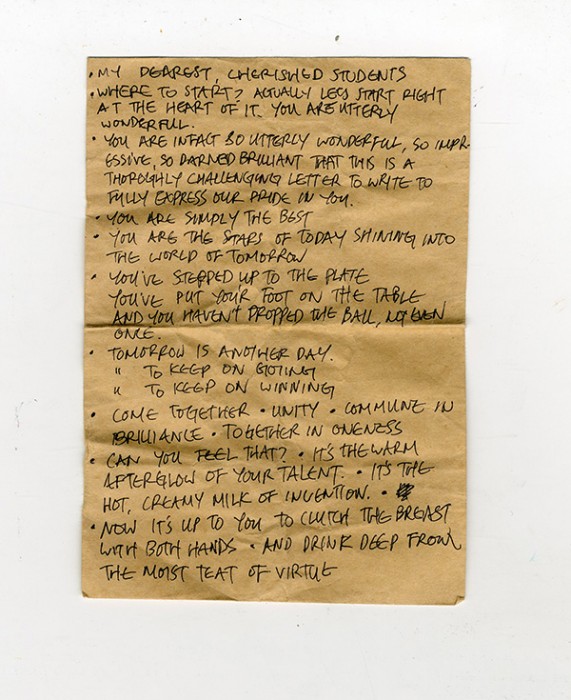 • MY DEAREST, CHERISHED STUDENTS
• WHERE TO START? ACTUALLY LETS START RIGHT
AT THE HEART OF IT. YOU ARE UTTERLY
WONDERFUL.
• YOU ARE INFACT SO UTTERLY WONDERFUL, SO IMPR-
ESSIVE, SO DARNED BRILLIANT THAT THIS IS A
THOROGHLY CHALLENGING LETTER TO WRITE TO
FULLY EXPRESS OUR PRIDE IN YOU.
• YOU ARE SIMPLY THE BEST
• YOU ARE THE STARS OF TODAY SHINING INTO
THE WORLD OF TOMORROW
• YOU'VE STEPPED UP TO THE PLATE
YOU'VE PUT YOUR FOOT ON THE TABLE
AND YOU HAVEN'T DROPPED THE BALL, NOT EVEN
ONCE.
• TOMORROW IS ANOTHER DAY.
" TO KEEP ON GOING
" TO KEEP ON WINNING
• COME TOGETHER • UNITY • COMMUNE IN
BRILLIANCE • TOGETHER IN ONENESS
• CAN YOU FEEL THAT? • IT'S THE WARM
AFTERGLOW OF YOUR TALENT. • IT'S THE
HOT, CREAMY MILK OF INVENTION. •
• NOW IT'S UP TO YOU TO CLUTCH THE BREAST
WITH BOTH HANDS • AND DRINK DEEP FROM
THE MOIST TEAT OF VIRTUE